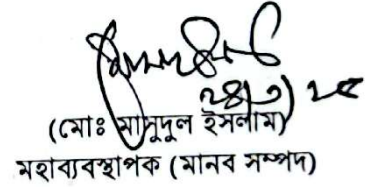 (মোঃ মাসুদুল ইসলাম)
মহাব্যবস্থাপক (মানব সম্পদ)